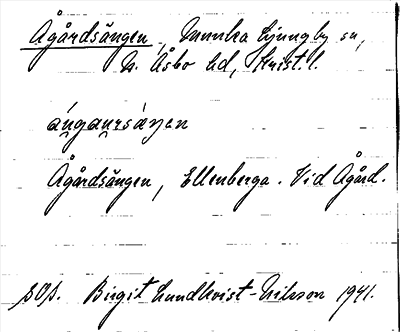 Ågårdsängen, Munka Ljungby sn,
N. Åsbo hd, Krist. l.
Ågårdsängen, Ellenberga. Vid Ågård.
Birgit Lundkvist-Nilsson 1941.